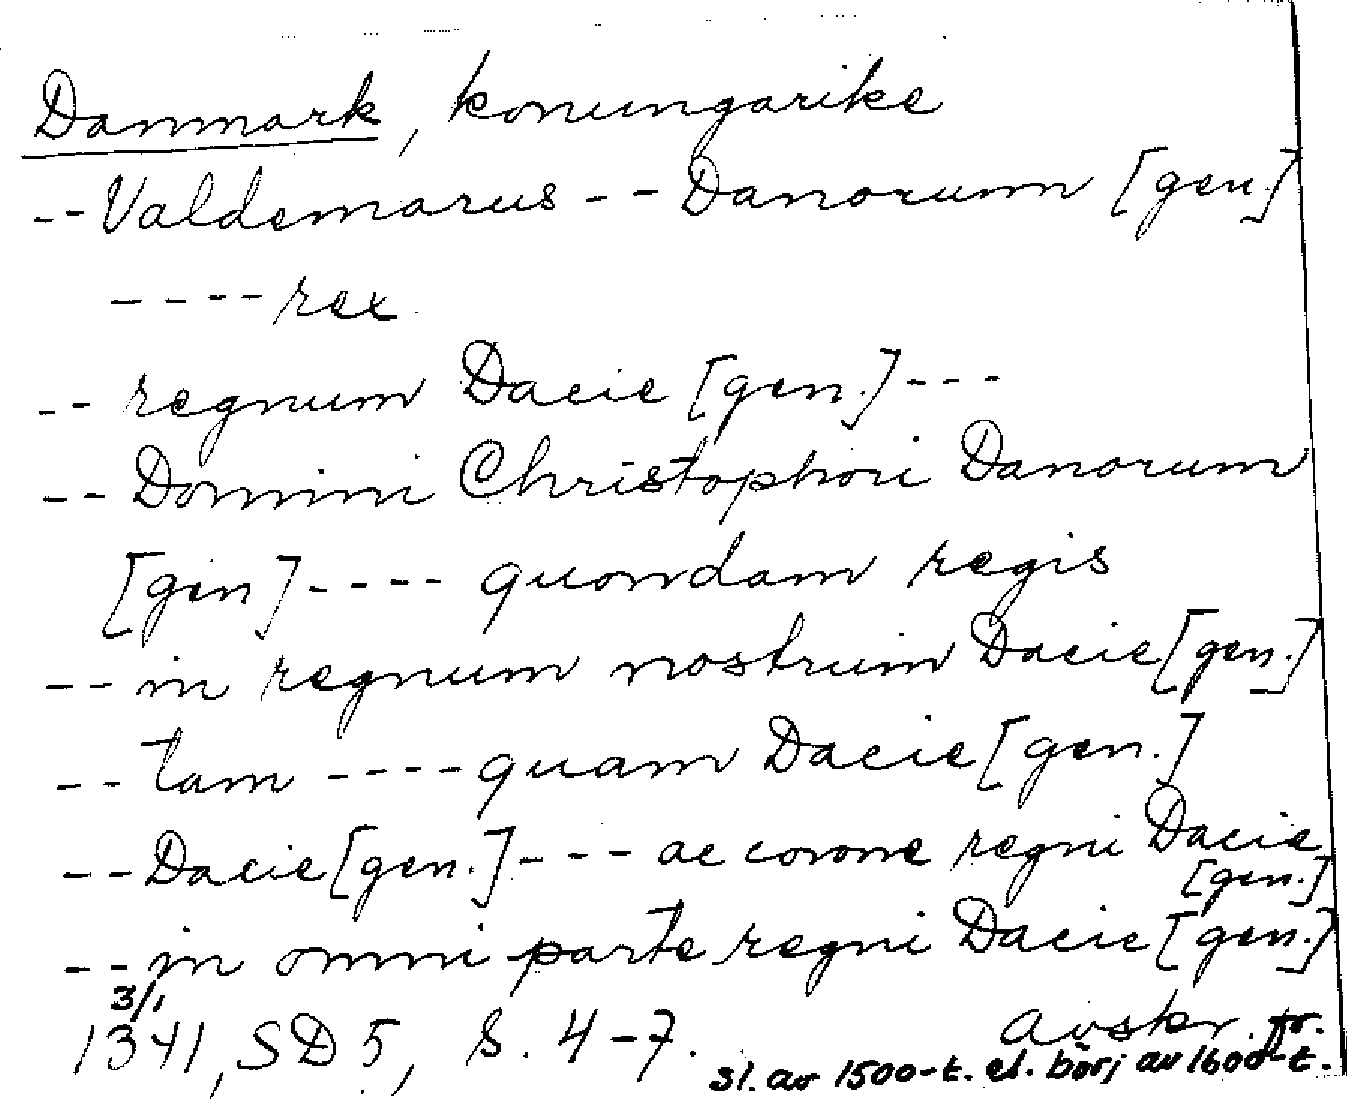 Danmark, konungarike
--Valdemarus -- Danorum [gen.]
---- rex
-- regnum Dacie [gen.] ---
-- Domini Christophori Danorum
[gen] ---- quondam regis
-- in regnum nostrum Dacie [gen.]
-- tam ---- quam Dacie [gen.]
-- Dacie [gen.] ---- ac corone regni Dacie
[gen.]
-- in omni parte regni Dacie [gen.]
3/1
1341, SD 5, S. 4-7. avskr. fr.
sl. av 1500-t. el. börj av 1600-t.